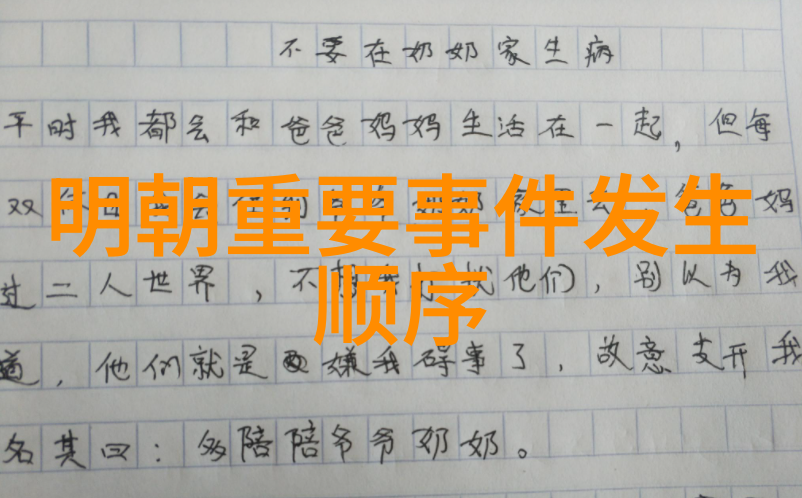 不要在奶奶家生病
平时我都会和爸爸妈妈生活在一起，但每
双休日 爸爸妈
明朝重要事件发生
过二人世界，不 他们，别以为我
顺序
道，他们就是嫌我碍事了，故意支开我
名其曰：多陪陪爷爷奶奶。